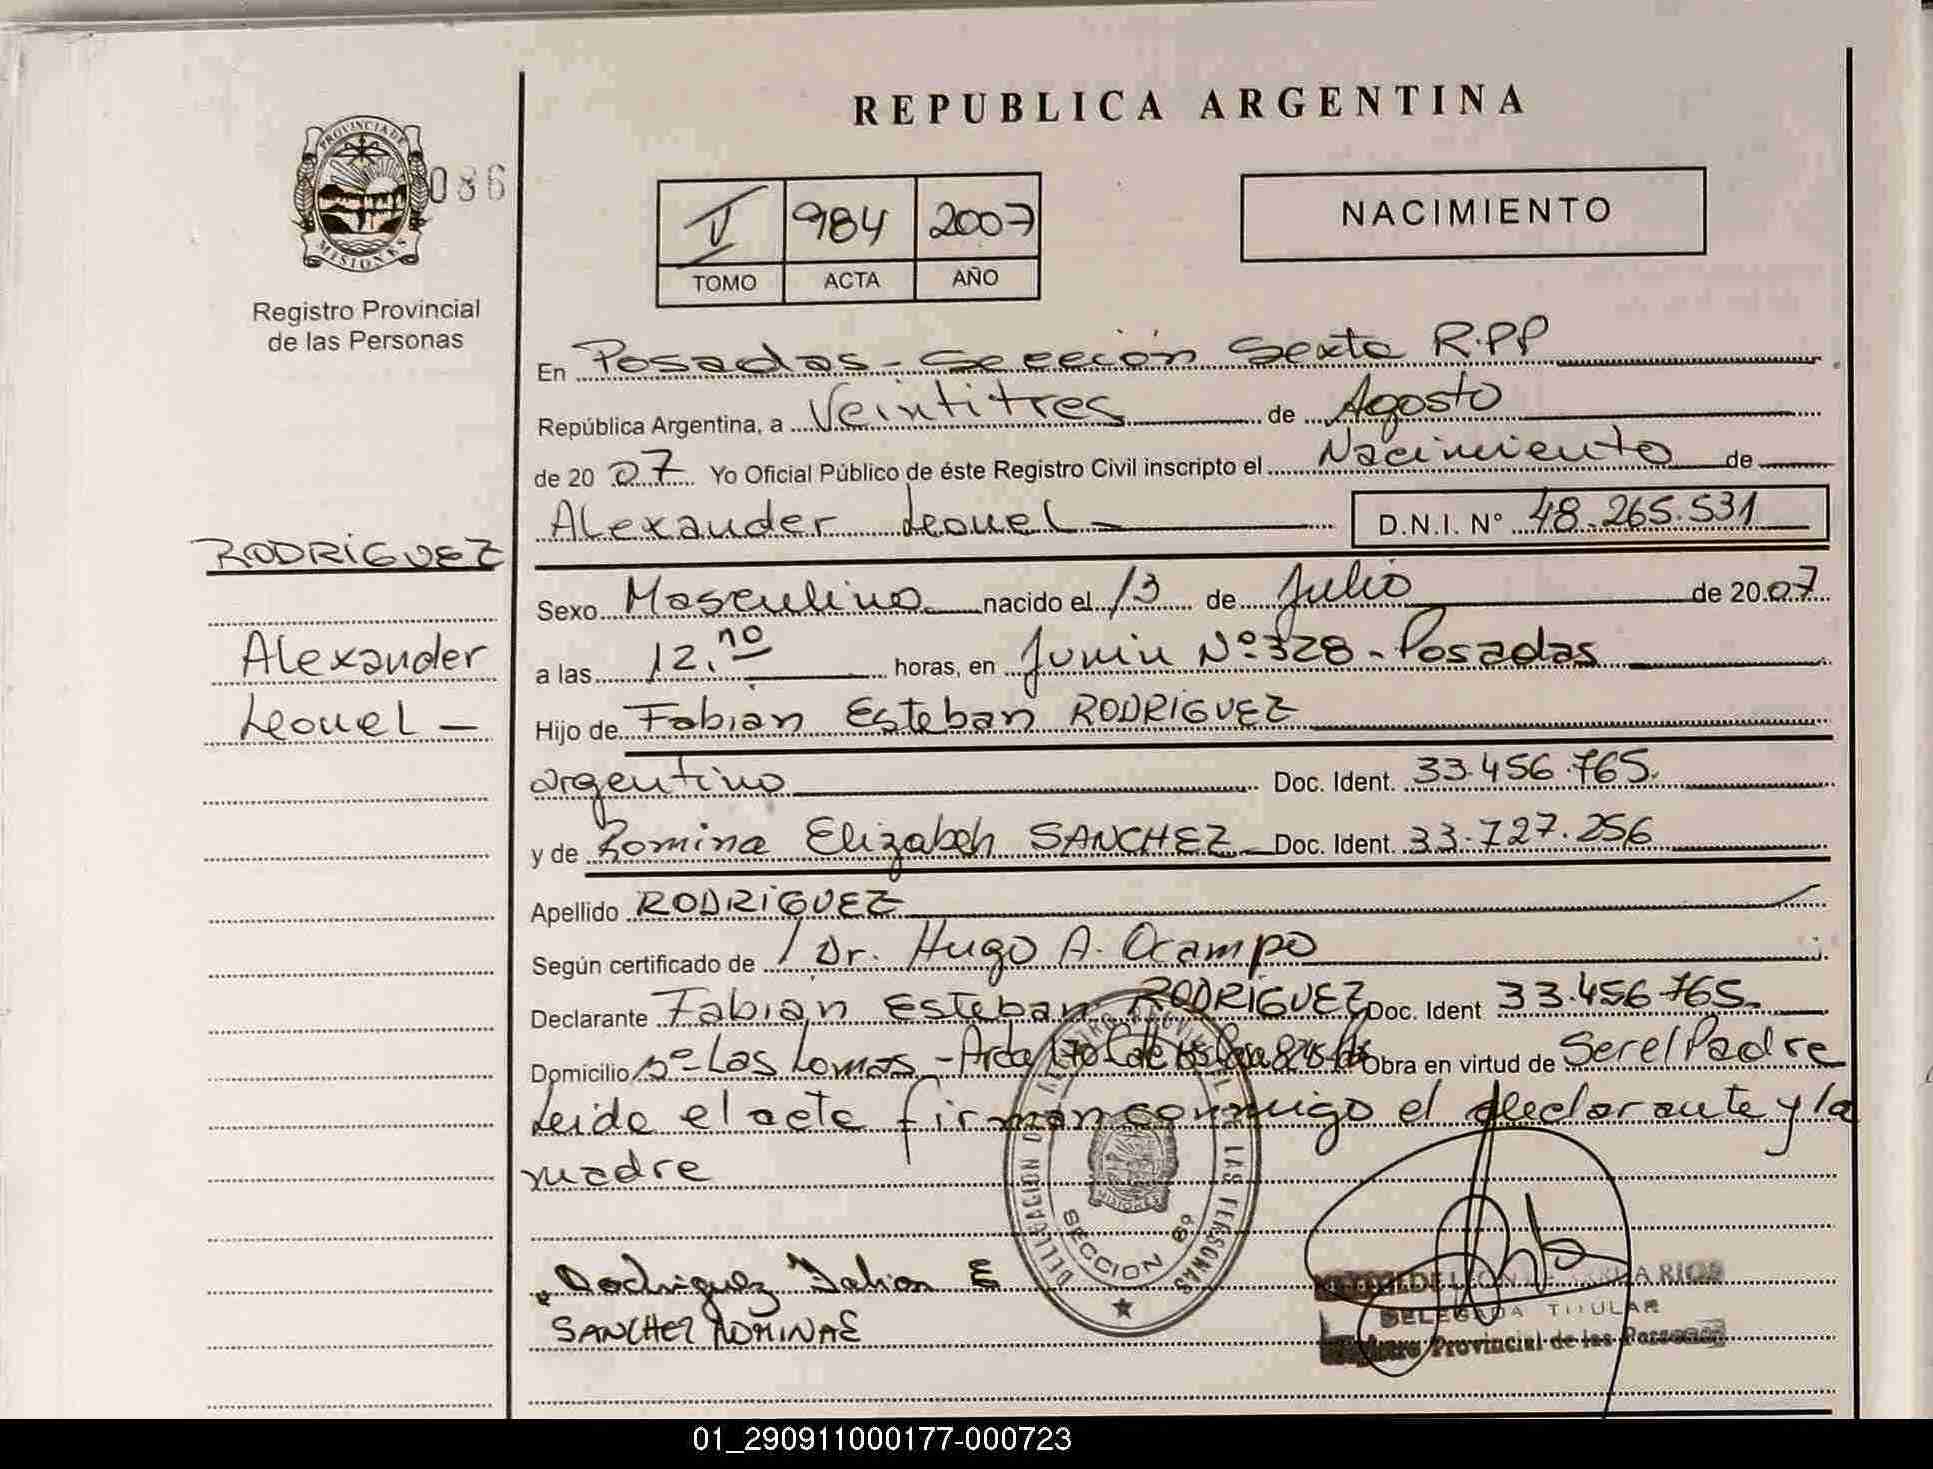 REPUBLICA ARGENTINA
PROVINCIA DE
MISIONES
086
Registro Provincial
de las Personas
V 984 2007
TOMO ACTA AÑO
NACIMIENTO
En Posadas - Sección Sexta R.P.P
República Argentina, a Veintitres de Agosto
de 2007 Yo Oficial Público de éste Registro Civil inscripto el Nacimiento de
Alexander Leonel - D.N.I. N° 48.265.531
RODRIGUEZ
Alexander
Leonel -
Sexo Masculino nacido el 13 de Julio de 2007
a las 12. horas, en Junin Nº 328 - Posadas
Hijo de Fabián Esteban RODRIGUEZ
argentino Doc. Ident. 33.456.765.
y de Romina Elizabeh SANCHEZ Doc. Ident. 33.727.256
Apellido RODRIGUEZ
Según certificado de Dr. Hugo A. Ocampo
Declarante Fabián Esteban RODRIGUEZ Doc. Ident 33.456.765.
Domicilio Bº Las Lomas - Obra en virtud de Ser el Padre
Leida el acta firman conmigo el declarante y la
madre
DELEGACION LAS PERSONAS
MISIONES
SECCION 6º
Rodriguez Fabian E
SANCHEZ ROMINA E
RIOS
DELEGADA TITULAR
Provincial de las Personas
01_290911000177-000723